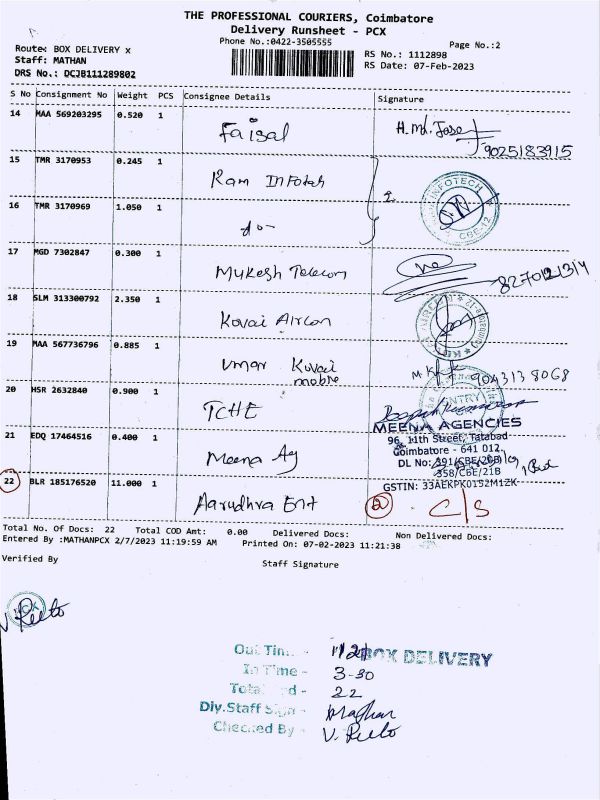 THE PROFESSIONAL COURIERS, Coimbatore
Delivery Runsheet - PCX
Phone No.:0422-3505555
Page No.:2
Route: BOX DELIVERY x
Staff: MATHAN
DRS No.: DCJB111289802
RS No.: 1112898
RS Date: 07-Feb-2023
S No Consignment No Weight PCS Consignee Details Signature
14 MAA 569203295 0.520 1 Faisal H.Md. 9025183915
15 TMR 3170953 0.245 1 Ram Infotch 2
INFOTECH
CBE-12
16 TMR 3170969 1.050 1 do-
17 MGD 7302847 0.300 1 Mukesh Telecom
18 SLM 313300792 2.350 1 Kovai Aircon
19 MAA 567736796 0.885 1 Umar Kovai
mobile 9043138068
20 HSR 2632840 0.900 1 TCHE
MEENA AGENCIES
21 EDQ 17464516 0.400 1 Meena Ag
96, 11th Street, Tatabad
Coimbatore - 641 012.
DL No: 391/CBE/20B
358/CBE/21B
GSTIN: 33AEKPK0152M1ZK
22 BLR 185176520 11.000 1 Aarudhra Ent 2 C/S
Total No. Of Docs: 22 Total COD Amt: 0.00 Delivered Docs: Non Delivered Docs:
Entered By :MATHANPCX 2/7/2023 11:19:59 AM Printed On: 07-02-2023 11:21:38
Verified By Staff Signature
PCX
Out Time - BOX DELIVERY
In Time - 3-30
22
Dly.Staff Sign -
Checked By -